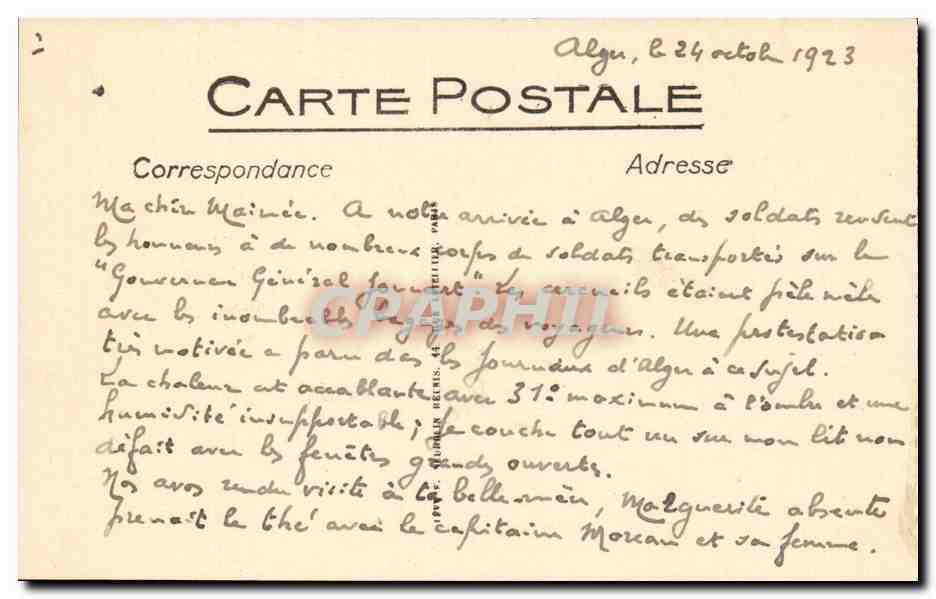 Alger, le 24 octobre 1923
CARTE POSTALE
Correspondance
Adresse
Ma chère Mainée. A notre arrivée à Alger, des soldats rendent
les honneurs à de nombreux corps de soldats transportés sur le
"Gouverneur Général Jonnart". Les cercueils étaient pêle mêle
avec les inombrables bagages des voyageurs. Une protestation
très motivée a paru dans les journaux d'Alger à ce sujet.
La chaleur est accablante avec 31° maximum à l'ombre et une
humidité insupportable; je couche tout nu sur mon lit non
défait avec les fenêtres grandes ouvertes.
Nos avos rendu visite à ta belle-mère, Marguerite absente
prenait le thé avec le capitaine Moreau et sa femme.
RÉUNIS, 44 LETELLIER, PARIS
CPAPHIL